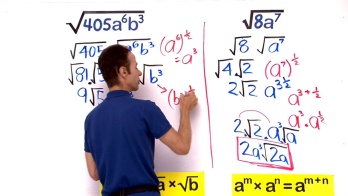 √405a⁶b³
√405 √a⁶ √b³ (a⁶)^½
= a³
√81.√5 √b³
9√5 (b³)^½
a × √b
√8a⁷
√8 √a⁷
√4.√2 (a⁷)^½
2√2 a^3½
a^3+½
a³.a^½
2√2.a³√a
2a³√2a
aᵐ × aⁿ = aᵐ⁺ⁿ